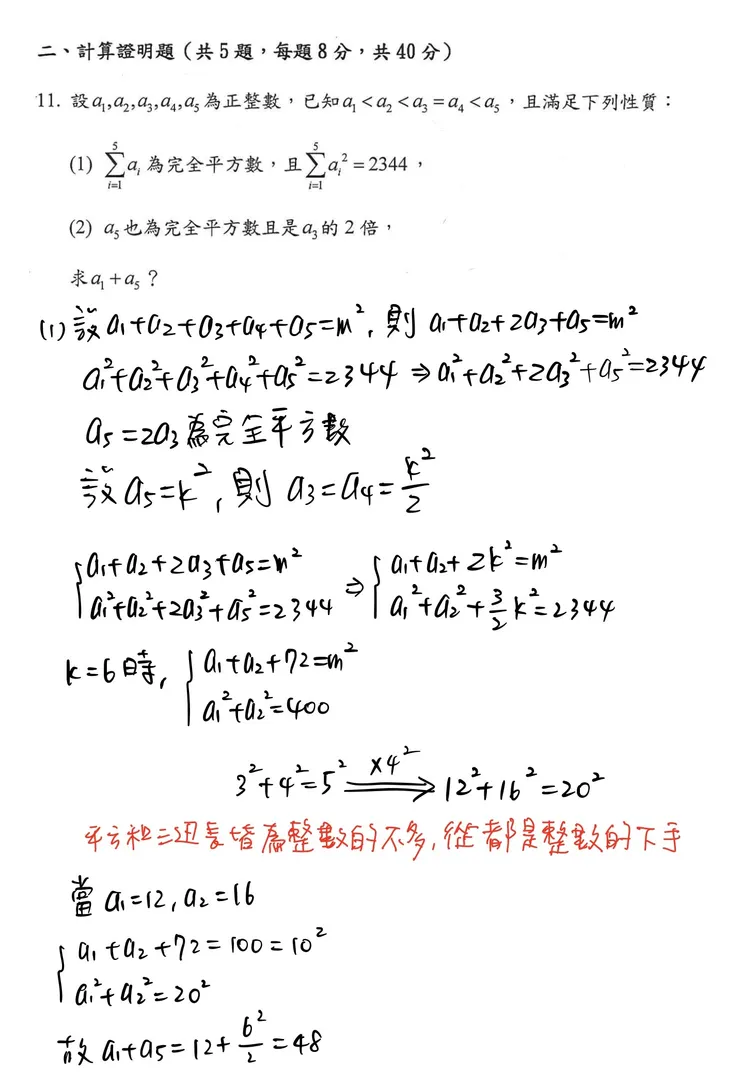 二、計算證明題（共 5 題，每題 8 分，共 40 分）
11. 設 a₁,a₂,a₃,a₄,a₅ 為正整數，已知 a₁ < a₂ < a₃ = a₄ < a₅ ，且滿足下列性質：
(1) ∑_{i=1}^{5} aᵢ 為完全平方數，且 ∑_{i=1}^{5} aᵢ² = 2344，
(2) a₅ 也為完全平方數且是 a₃ 的 2 倍，
求 a₁ + a₅ ？
(1) 設 a₁+a₂+a₃+a₄+a₅=m², 則 a₁+a₂+2a₃+a₅=m²
a₁²+a₂²+a₃²+a₄²+a₅²=2344 ⇒ a₁²+a₂²+2a₃²+a₅²=2344
a₅=2a₃為完全平方數
設 a₅=k², 則 a₃=a₄=k²/2
{ a₁+a₂+2a₃+a₅=m² ⇒ { a₁+a₂+2k²=m²
a₁²+a₂²+2a₃²+a₅²=2344 a₁²+a₂²+3/2k²=2344
k=6時, { a₁+a₂+72=m²
a₁²+a₂²=400
3²+4²=5² ×4² ⇒ 12²+16²=20²
平方和三边長皆為整數的不多, 從都是整數的下手
當 a₁=12, a₂=16
{ a₁+a₂+72=100=10²
a₁²+a₂²=20²
故 a₁+a₅=12+6²/2=48